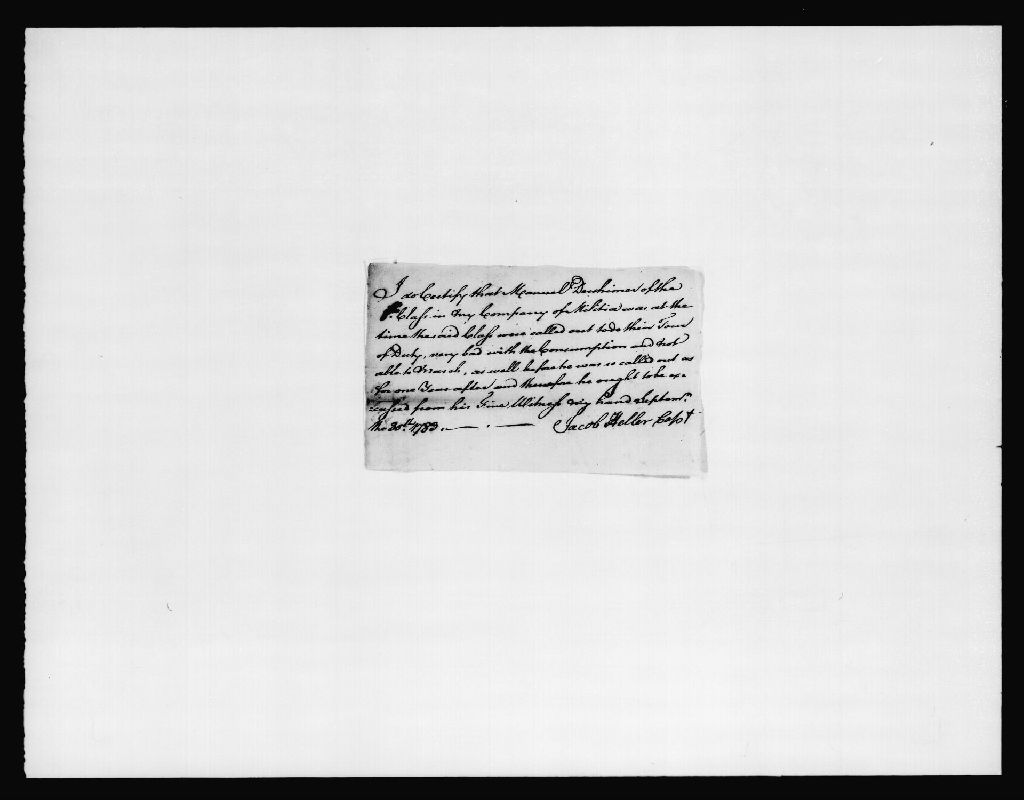 I do Certify that Manuel Deshimer of the
Class in my Company of Militia was at the
time the said Class were called out to do their Tour
of Duty, very bad with the Consumption and not
able to March, as well before he was so called out as
for one Year after, and therefore he ought to be ex=
cused from his Fine, Witness my hand Septemr.
the 30th. 1783.
Jacob Heller Capt